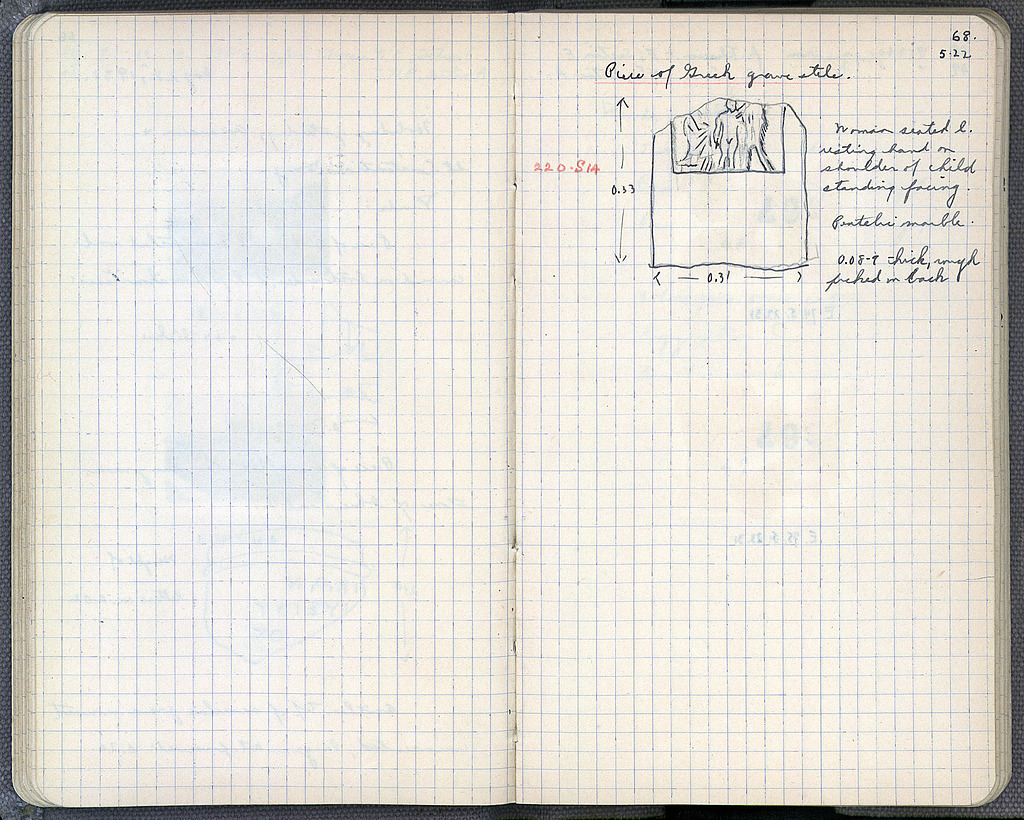 68.
5.22
Piece of Greek grave stele.
220-S14
0.33
0.31
Woman seated l.
resting hand on
shoulder of child
standing facing.
Pentelic marble.
0.08-9 thick, rough
picked on back